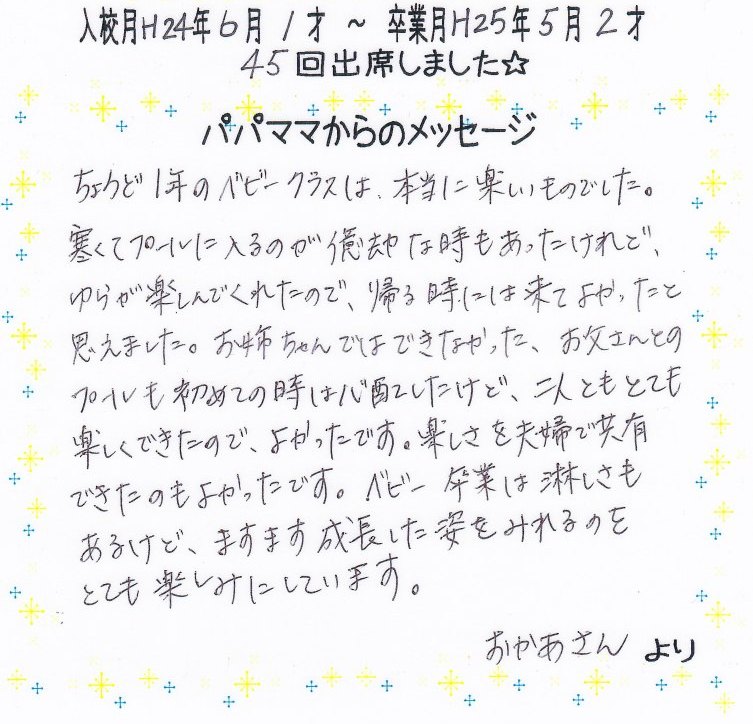 入校月H24年6月1才～卒業月H25年5月2才
45回出席しました☆
パパママからのメッセージ
ちょうど1年のベビークラスは、本当に楽しいものでした。
寒くてプールに入るのが億劫な時もあったけれど、
ゆらが楽しんでくれたので、帰る時には来てよかったと
思えました。お姉ちゃんではできなかった、お父さんとの
プールも初めての時は心配したけど、二人ともとても
楽しくできたので、よかったです。楽しさを夫婦で共有
できたのもよかったです。ベビー卒業は淋しさも
あるけど、ますます成長した姿をみれるのを
とても楽しみにしています。
おかあさんより